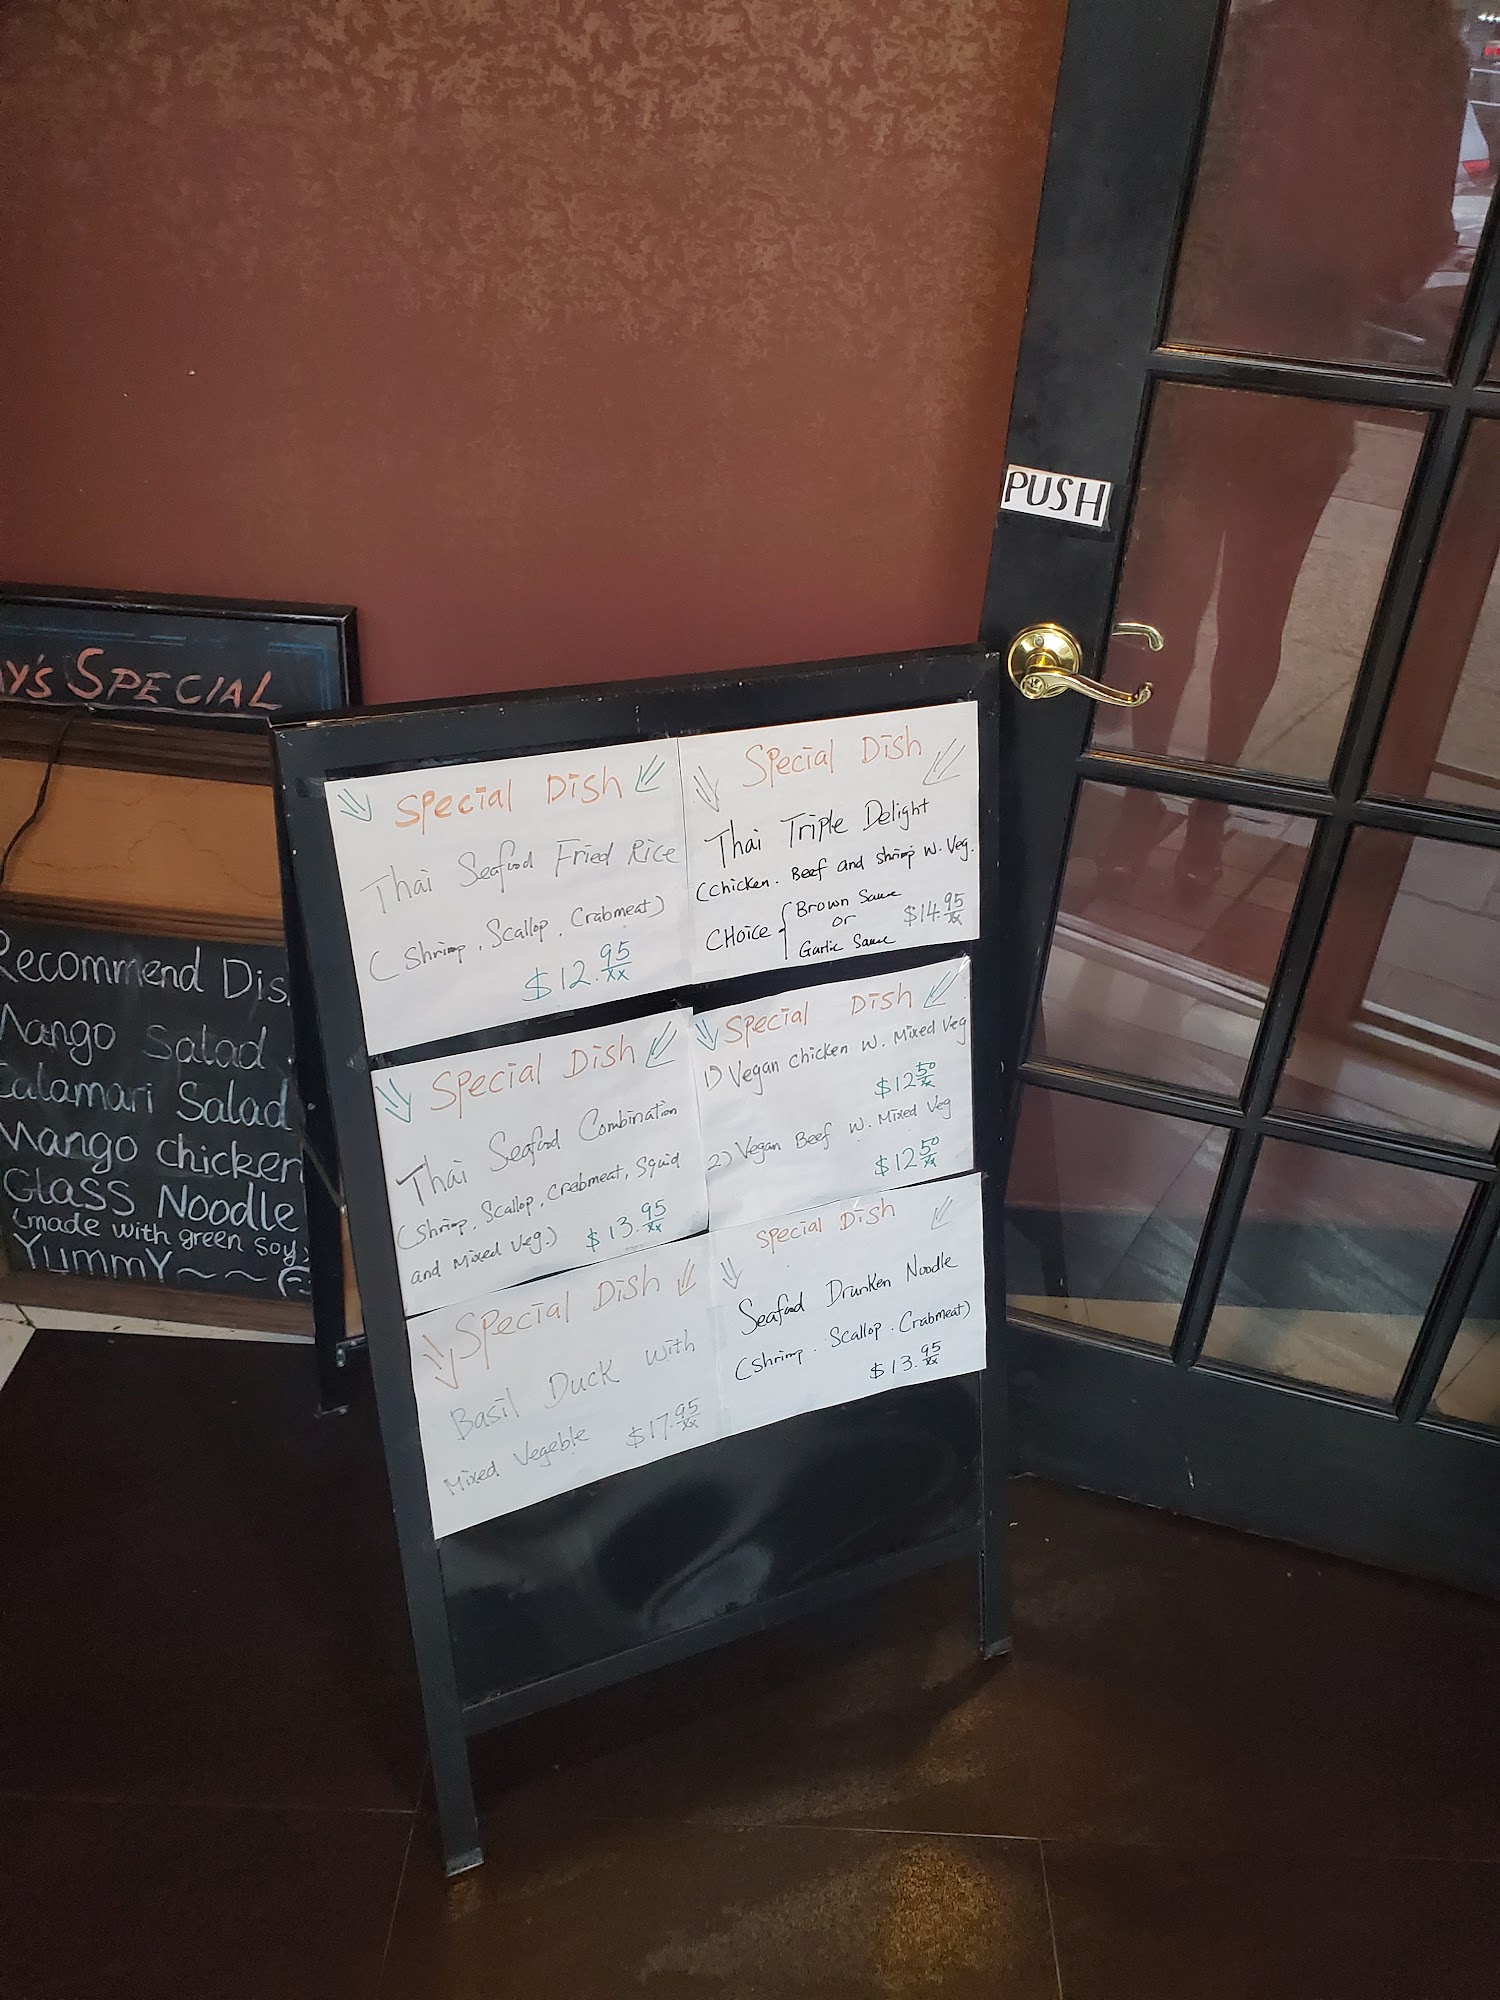 PUSH
AY'S SPECIAL
Recommend Dis
Mango Salad
Calamari Salad
Mango chicken
Glass Noodle
(made with green soy
YUMMY~~(
Special Dish
Thai Seafood Fried Rice
(Shrimp, Scallop, Crabmeat)
$12.95/xx
Special Dish
Thai Triple Delight
(Chicken. Beef and shrimp w. Veg.
CHOICE { Brown Sauce
or
Garlic Sauce
$14.95/xx
Special Dish
Thai Seafood Combination
(Shrimp, Scallop, Crabmeat, Squid
and Mixed Veg.) $13.95/xx
Special Dish
1) Vegan chicken w. Mixed Veg
$12 50/xx
2) Vegan Beef w. Mixed Veg
$12 50/xx
Special Dish
Basil Duck with
Mixed Vegeble $17.95/xx
Special Dish
Seafood Drunken Noodle
(Shrimp. Scallop. Crabmeat)
$13.95/xx